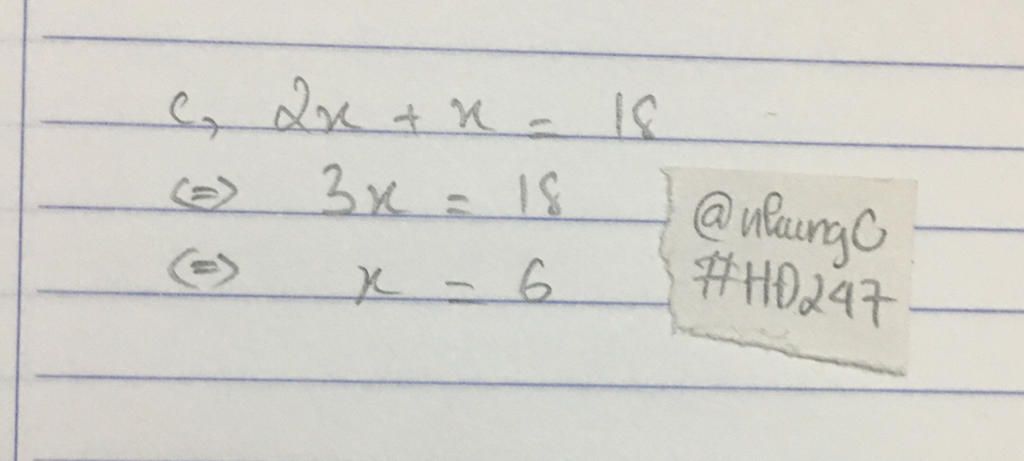 c, 2x + x = 18
<=> 3x = 18
<=> x = 6
@nhungC
#HĐ247